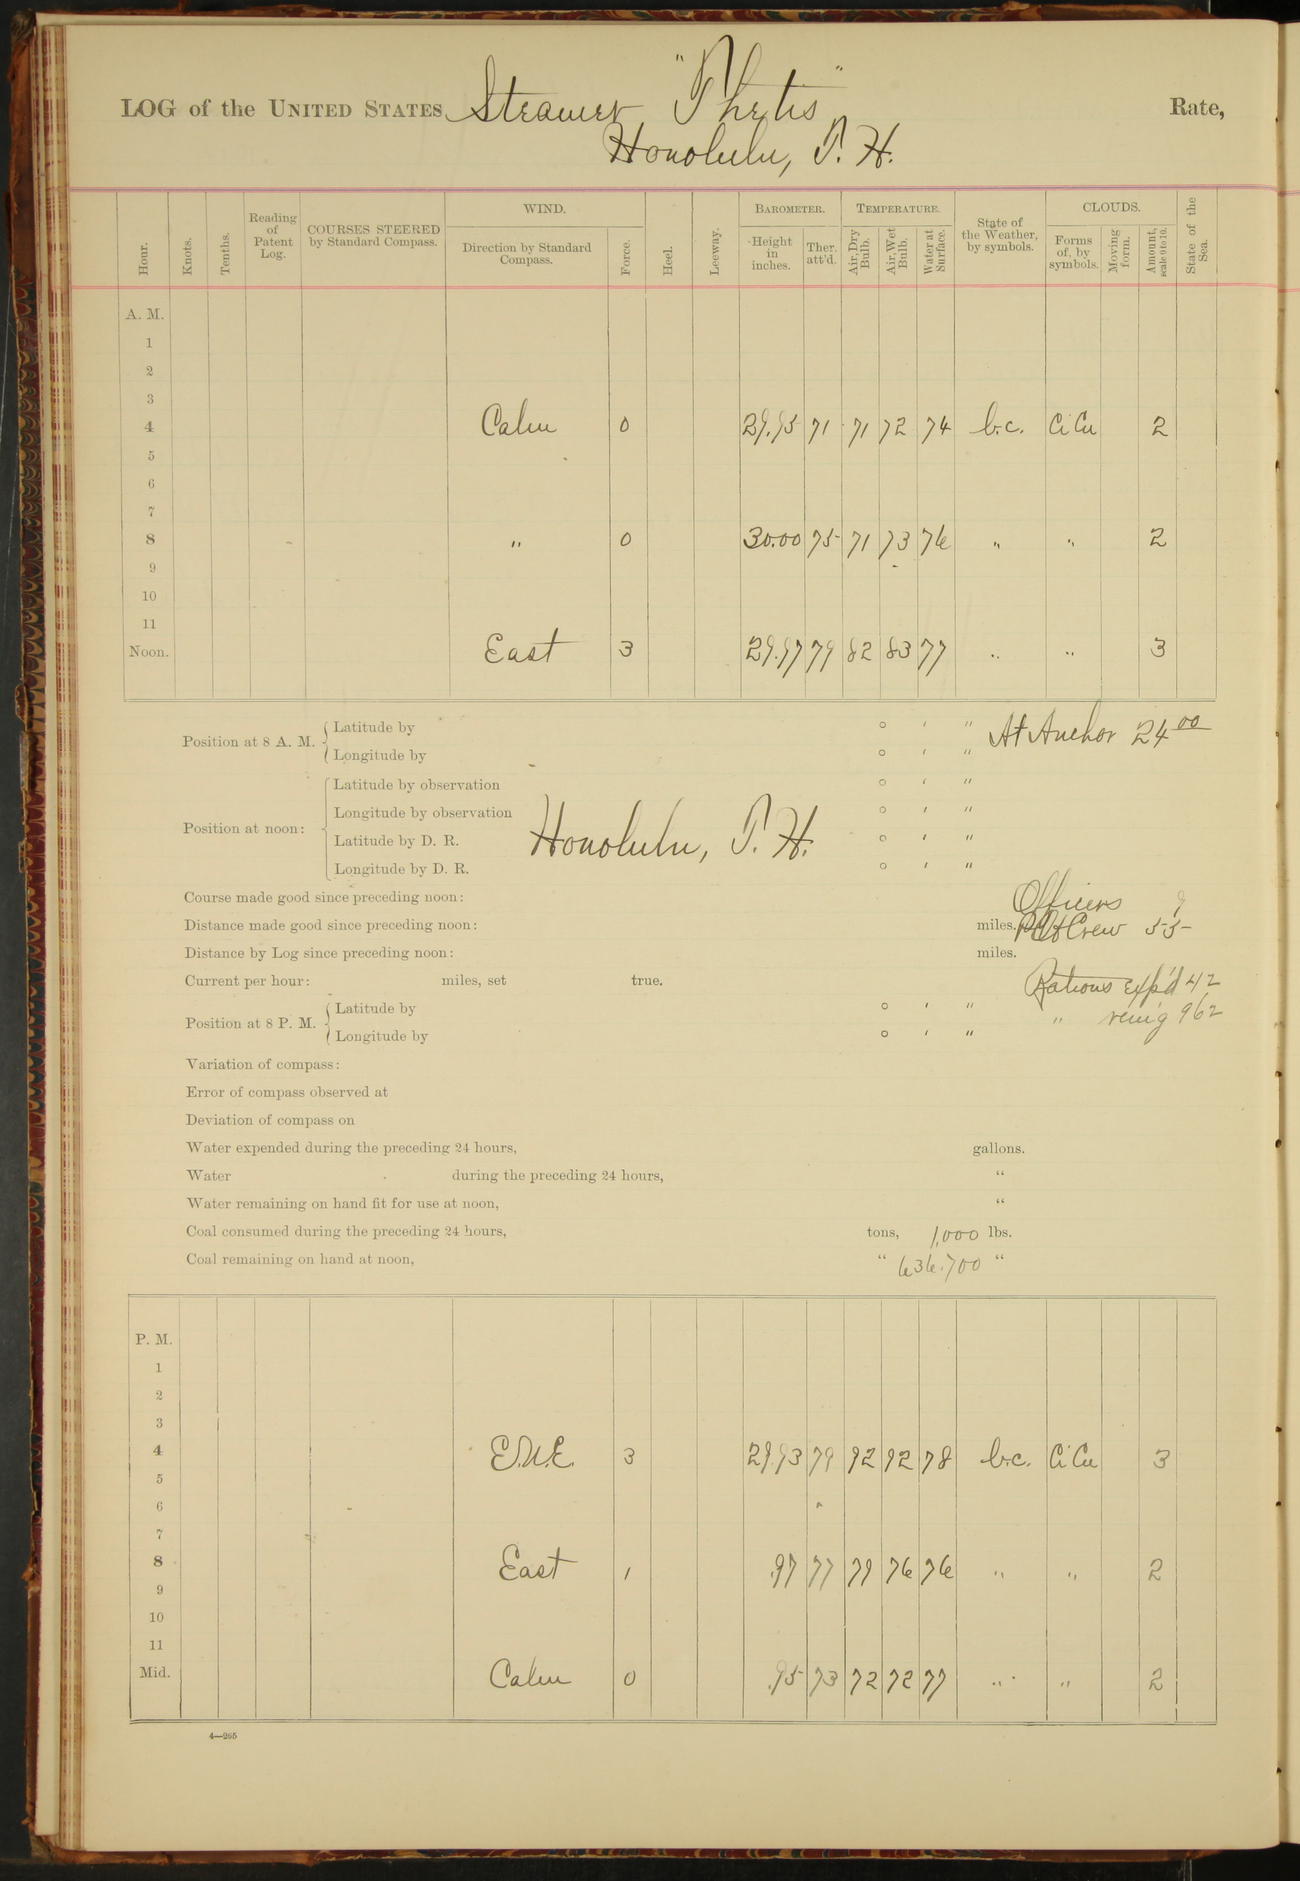 LOG of the UNITED STATES Steamer "Thetis" Rate,
Honolulu, T. H.
Hour. Knots. Tenths. Reading of Patent Log. COURSES STEERED by Standard Compass. WIND. Direction by Standard Compass. Force. Heel. Leeway. BAROMETER. Height in inches. Ther. att'd. TEMPERATURE. Air, Dry Bulb. Air, Wet Bulb. Water at Surface. State of the Weather, by symbols. CLOUDS. Forms of, by symbols. Moving form. Amount, scale 0 to 10. State of the Sea.
A. M.
1
2
3
4 Calm 0 29.95 71 71 72 74 b.c. Ci Cu 2
5
6
7
8 " 0 30.00 75 71 73 76 " " 2
9
10
11
Noon. East 3 29.97 79 82 83 77 " " 3
Position at 8 A. M. Latitude by ° ' " At Anchor 24 00
Longitude by ° ' "
Position at noon: Latitude by observation ° ' "
Longitude by observation ° ' "
Honolulu, T. H.
Latitude by D. R. ° ' "
Longitude by D. R. ° ' "
Course made good since preceding noon: Officers 9
Distance made good since preceding noon: miles. Crew 55
Distance by Log since preceding noon: miles.
Current per hour: miles, set true. Rations exp'd 42
Position at 8 P. M. Latitude by ° ' " " rem'g 962
Longitude by ° ' "
Variation of compass:
Error of compass observed at
Deviation of compass on
Water expended during the preceding 24 hours, gallons.
Water during the preceding 24 hours, "
Water remaining on hand fit for use at noon, "
Coal consumed during the preceding 24 hours, tons, 1,000 lbs.
Coal remaining on hand at noon, " 636.700 "
P. M.
1
2
3
4 E.N.E. 3 29.93 79 92 92 78 b.c. Ci Cu 3
5
6
7
8 East 1 .97 77 79 76 76 " " 2
9
10
11
Mid. Calm 0 .95 73 72 72 77 " " 2
4—265